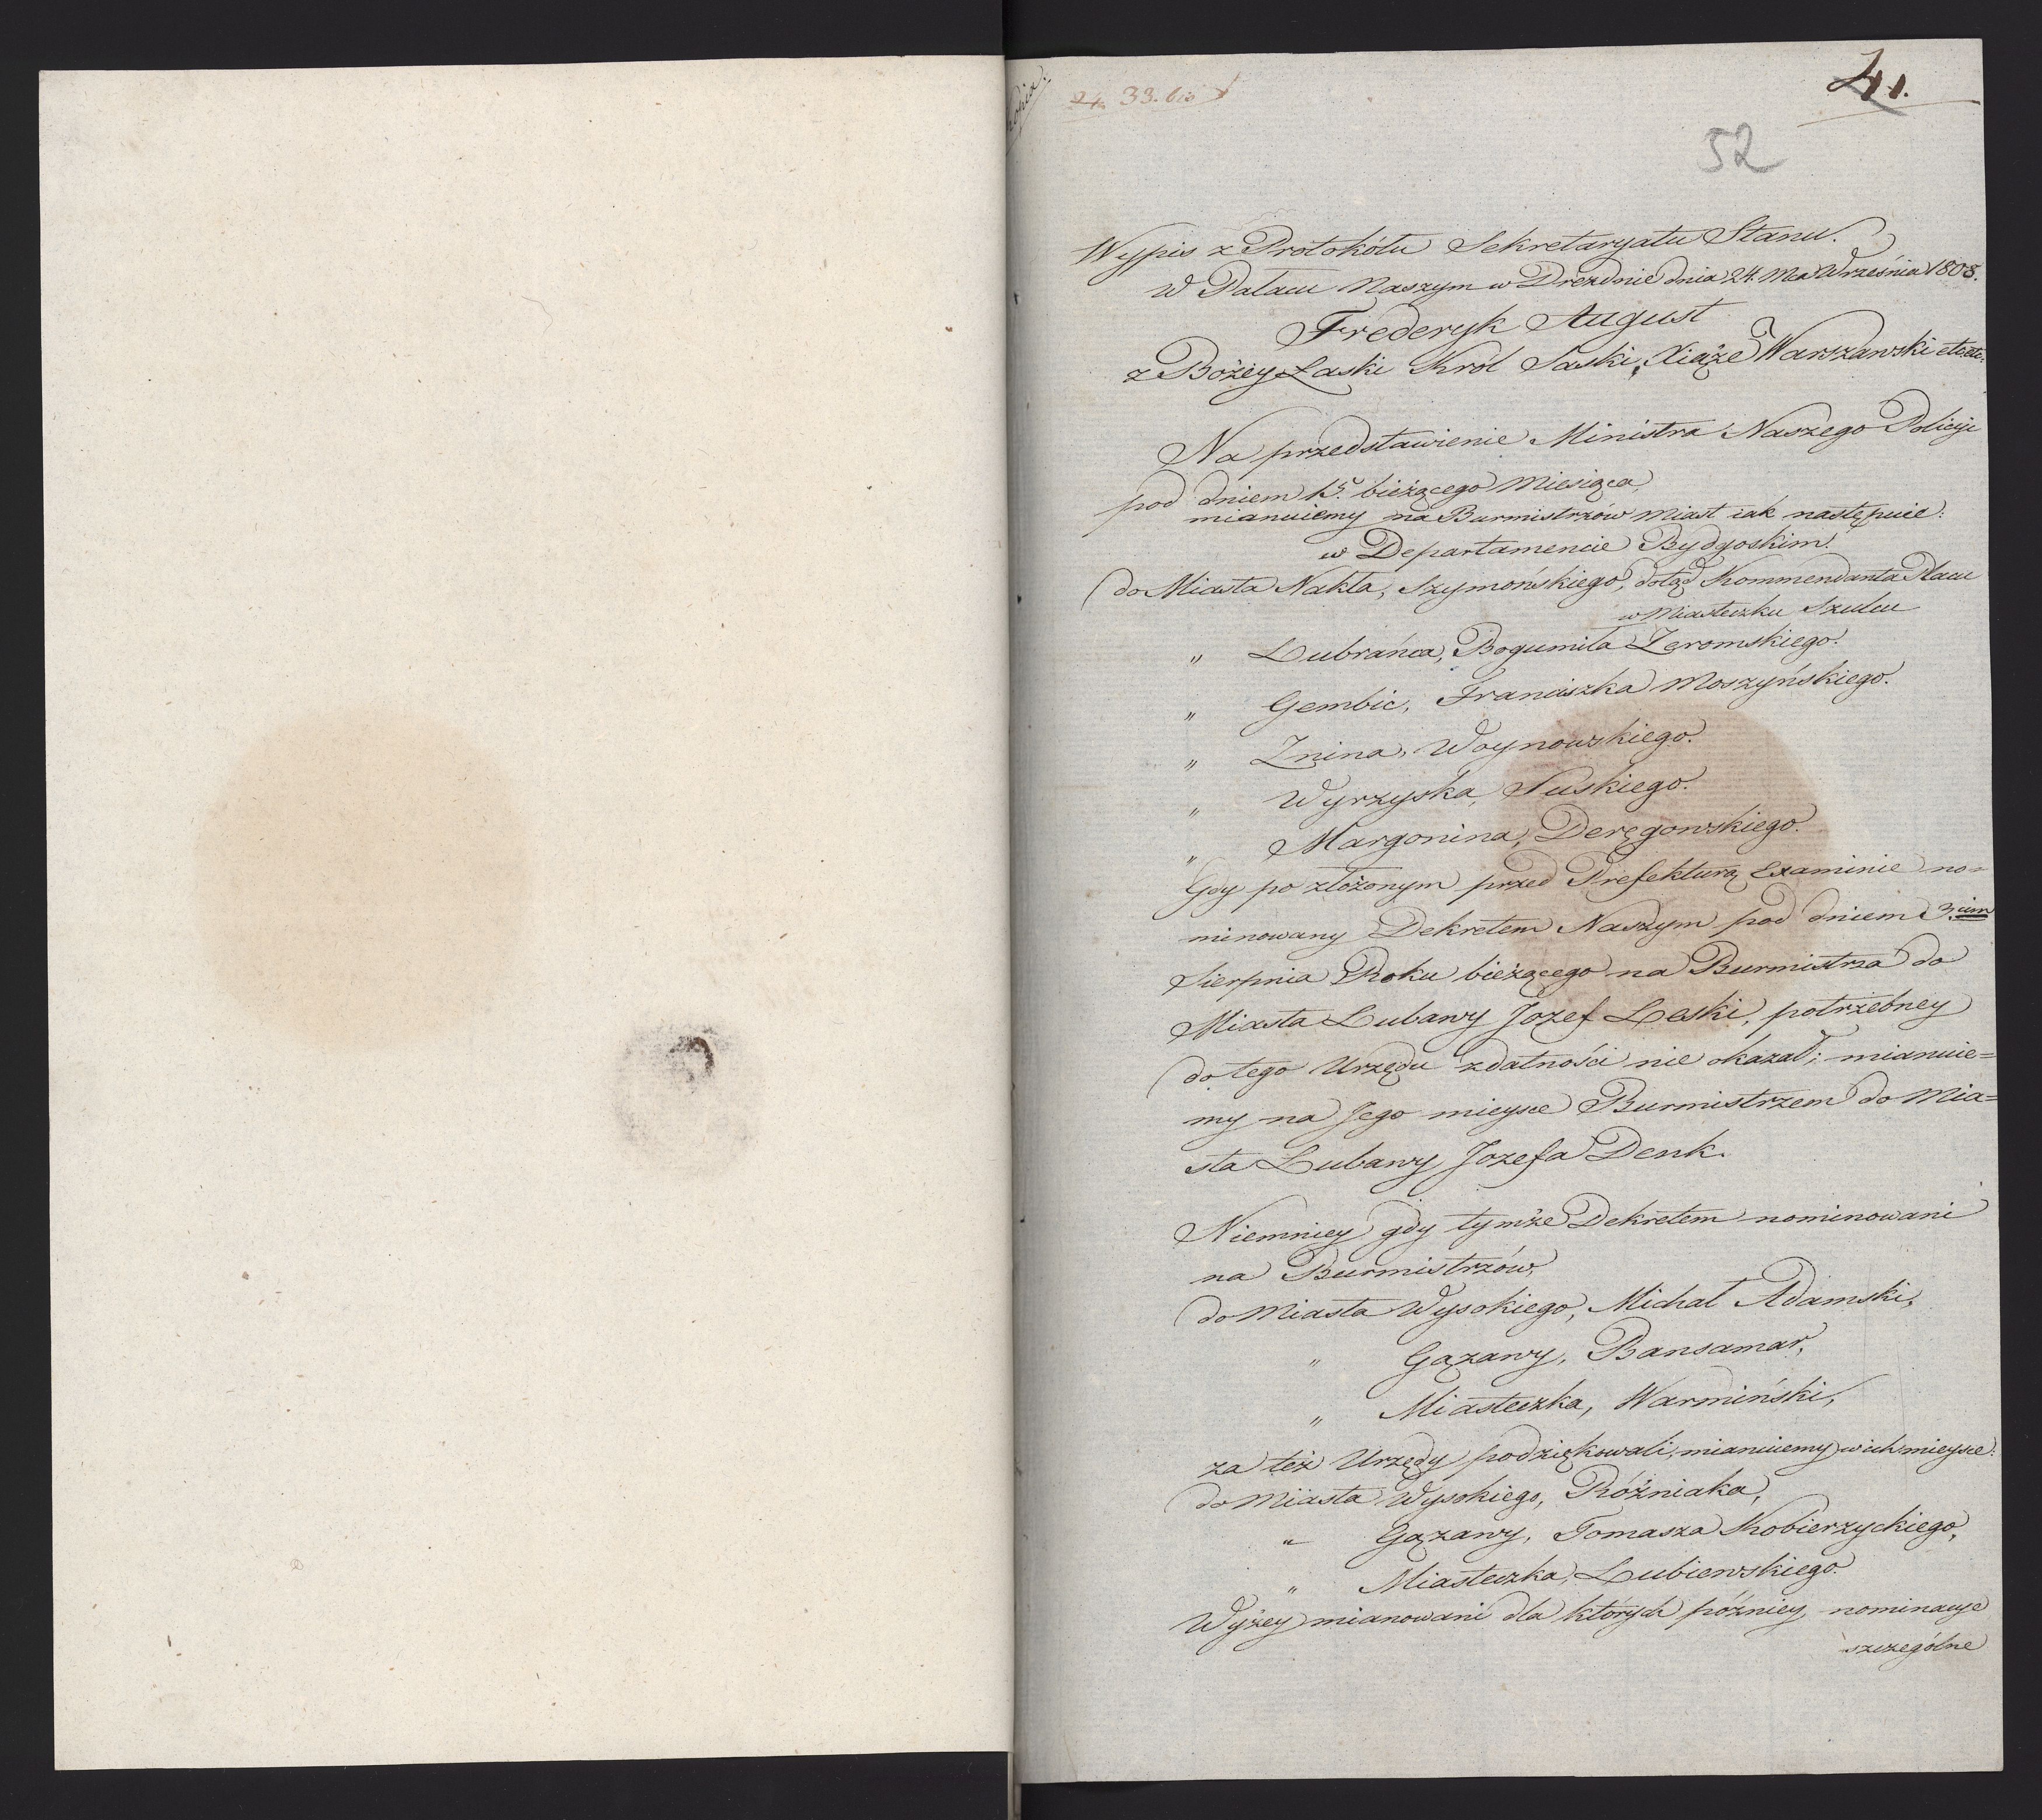 Kopia.
24. 33. bis
41.
52
Wypis z Protokółu Sekretaryatu Stanu.
w Pałacu Naszym w Dreznie dnia 24. Mca Września 1808.
Frederyk August
z Bożey Łaski Król Saski, Xiąże Warszawski etc: etc:
Na przedstawienie Ministra Naszego Policyi
pod dniem bieżącego Miesiąca,
mianuiemy na Burmistrzów Miast iak następuie:
w Departamencie Bydgoskim.
do Miasta Nakła, Szymońskiego, dotąd Kommendanta Placu
w Miasteczku Szulcu
" Lubrańca, Bogumiła Zeromskiego.
" Gembic, Franciszka Moszyńskiego.
" Znina, Woynowskiego.
" Wyrzyska, Suskiego.
" Margonina, Deręgowskiego.
Gdy po złożonym przed Prefekturą Examinie no=
minowany Dekretem Naszym pod dniem 3cim
Sierpnia Roku bieżącego na Burmistrza do
Miasta Lubawy Jozef Leski, potrzebney
do tego Urzędu zdatności nie okazał; mianuie=
my na Jego mieysce Burmistrzem do Mia=
sta Lubawy Jozefa Denk.
Niemniey gdy tymże Dekretem nominowani
na Burmistrzów,
do Miasta Wysokiego, Michał Adamski,
" Gązawy, Bansamar,
" Miasteczka, Warmiński,
za też Urzędy podziękowali, mianuiemy w ich mieysce:
do Miasta Wysokiego, Różniaka,
" Gązawy, Tomasza Kobierzyckiego,
" Miasteczka, Lubiewskiego.
Wyżey mianowani dla ktorych późniey nominacye
szczególne